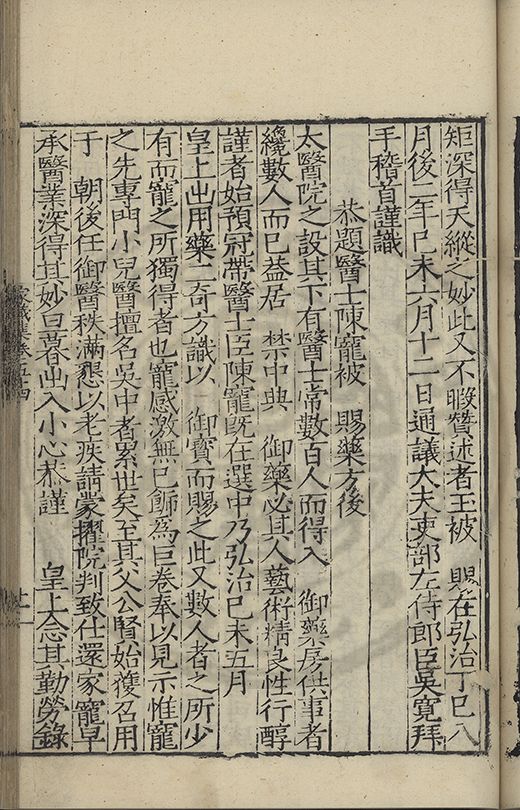 矩深得天縱之妙此又不暇贅述者王被　賜在弘治丁巳八
月後二年己未六月十二日通議大夫吏部左侍郎臣吳寬拜
手稽首謹識
恭題醫士陳寵被　賜藥方後
太醫院之設其下有醫士常數百人而得入　御藥房供事者
纔數人而已益居　禁中典　御藥必其人藝術精良性行醇
謹者始預冠帶醫士臣陳寵旣在選中乃弘治己未五月
皇上出用藥二奇方識以　御寶而賜之此又數人者之所少
有而寵之所獨得者也寵感激無已飾為巨卷奉以見示惟寵
之先專門小兒醫擅名吳中者累世矣至其父公賢始獲召用
于　朝後任御醫秩滿懇以老疾請蒙擢院判致仕還家寵早
承醫業深得其妙旦暮出入小心恭謹　皇上念其勤勞錄
家藏集卷五十四